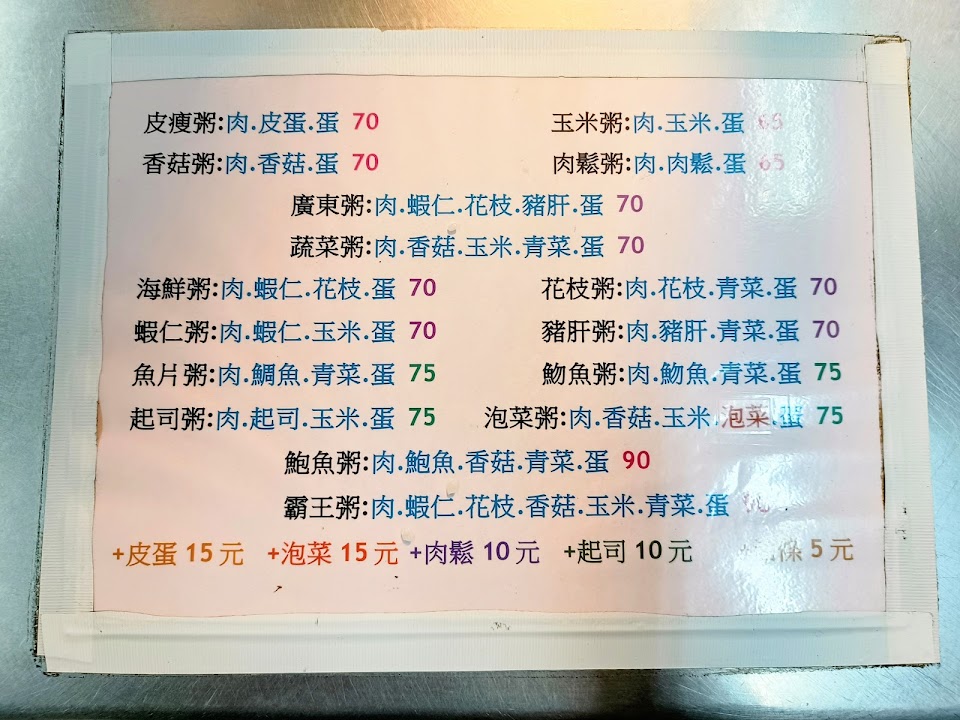 皮瘦粥:肉.皮蛋.蛋 70 玉米粥:肉.玉米.蛋 65
香菇粥:肉.香菇.蛋 70 肉鬆粥:肉.肉鬆.蛋 65
廣東粥:肉.蝦仁.花枝.豬肝.蛋 70
蔬菜粥:肉.香菇.玉米.青菜.蛋 70
海鮮粥:肉.蝦仁.花枝.蛋 70 花枝粥:肉.花枝.青菜.蛋 70
蝦仁粥:肉.蝦仁.玉米.蛋 70 豬肝粥:肉.豬肝.青菜.蛋 70
魚片粥:肉.鯛魚.青菜.蛋 75 魩魚粥:肉.魩魚.青菜.蛋 75
起司粥:肉.起司.玉米.蛋 75 泡菜粥:肉.香菇.玉米.泡菜.蛋 75
鮑魚粥:肉.鮑魚.香菇.青菜.蛋 90
霸王粥:肉.蝦仁.花枝.香菇.玉米.青菜.蛋
+皮蛋 15 元 +泡菜 15 元 +肉鬆 10 元 +起司 10 元 5 元